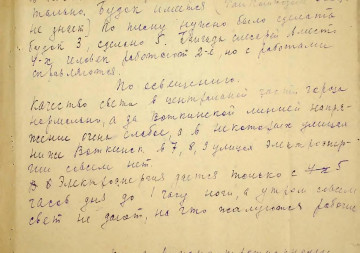 тально. Будок имеется
не знает) По плану нужно было сделать
будок 3, сделано 5. Бригада слесарей вместо
4-х человек работают 2-е, но с работами
справляются.
По освещению.
Качество света в центральной части города
нормально, а за Воткинской линией напря-
жение очень слабое, а в некоторых улицах
ниже Воткинск. в 7, 8, 9 улицах электроэнер-
гии совсем нет.
Электроэнергия дается только с 5
часов дня до 1 часу ночи, а утром совсем
свет не дают, на что жалуются рабочие